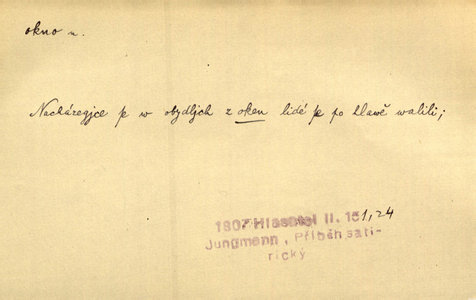 okno n.
Nacházegjce se w obydljch z oken lidé se po hlawě walili;
1807 Hlasatel II. 151,24
Jungmann, Příběh sati-
rický